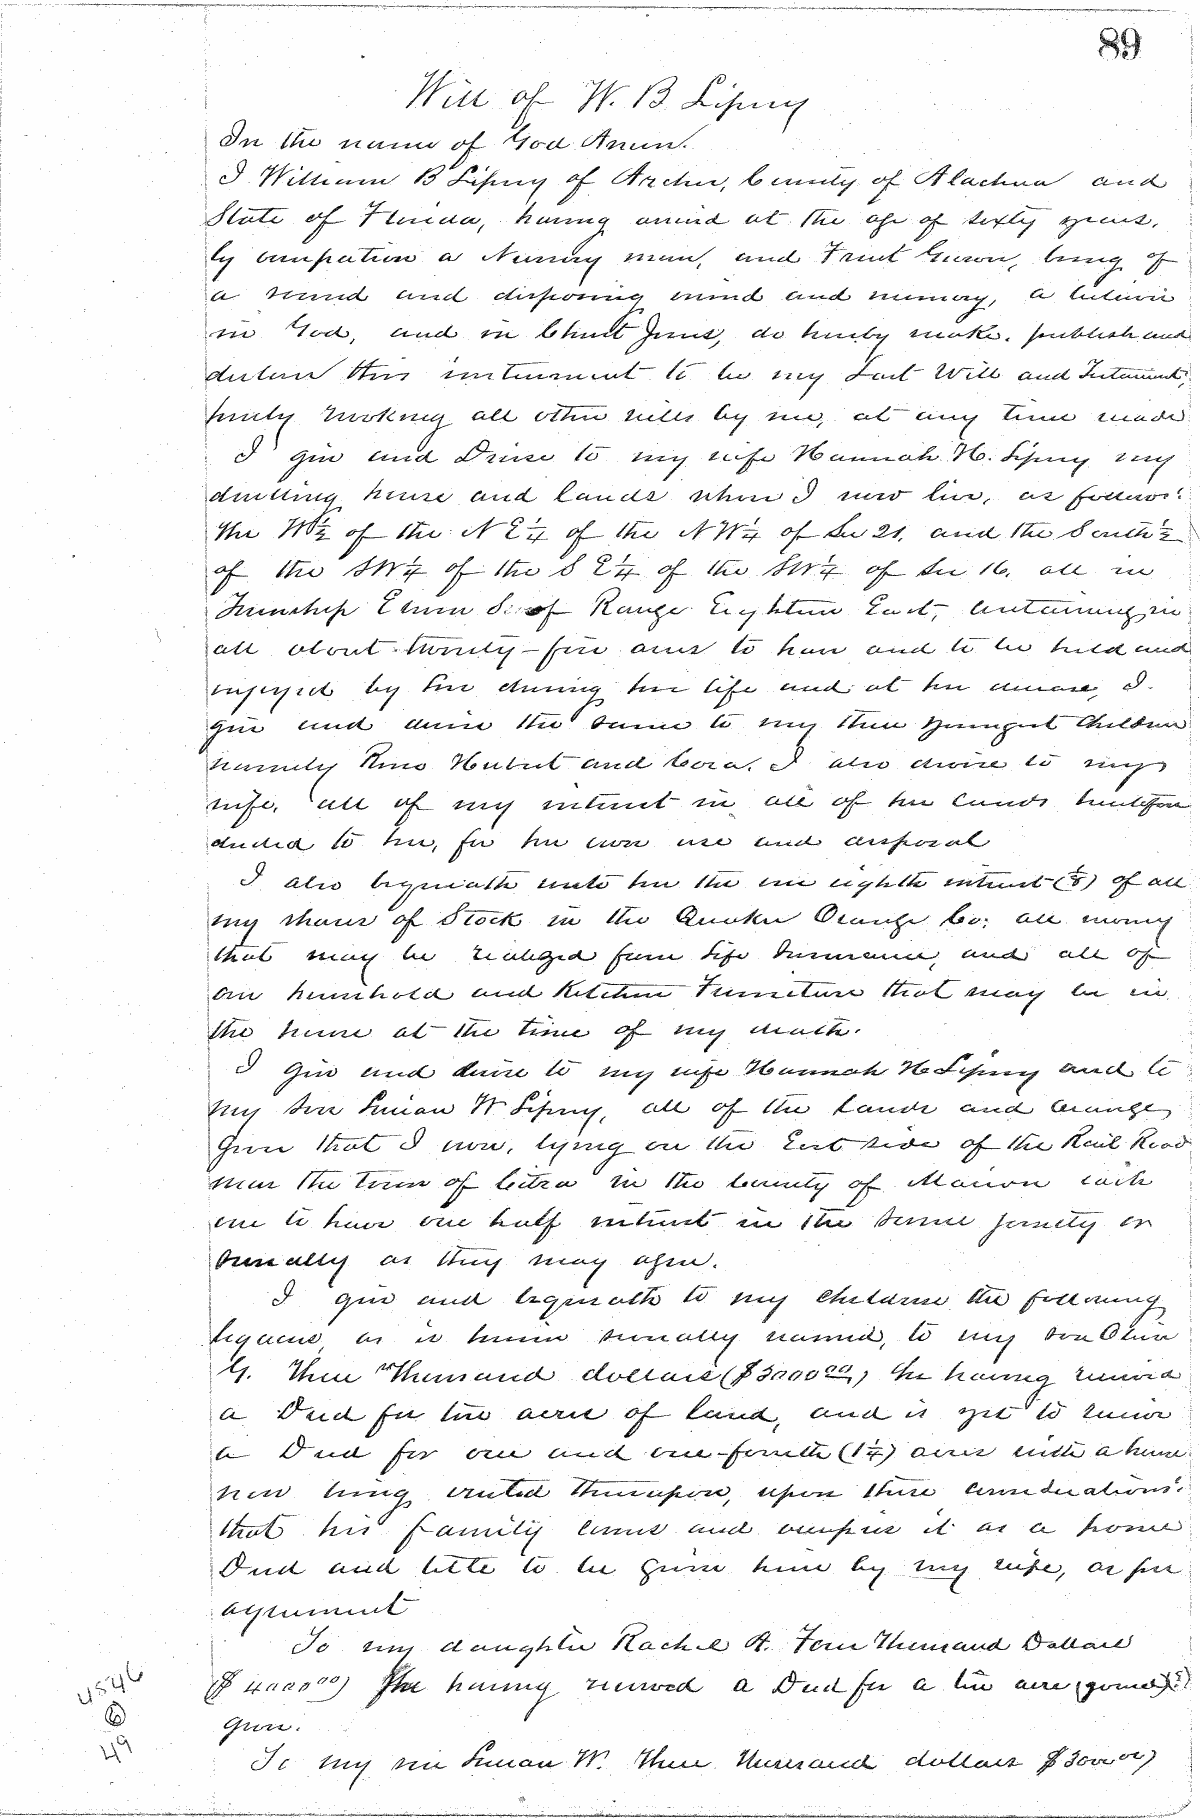 89
Will of W. B. Lipsey
In the name of God Amen.
I William B Lipsey of Archer, County of Alachua and
State of Florida, having arrived at the age of sixty years,
by occupation a Nursery man, and Fruit Grower, being of
a sound and disposing mind and memory, a believer
in God, and in Christ Jesus, do hereby make, publish and
declare this instrument to be my Last Will and Testament,
hereby revoking all other wills by me, at any time made
I give and Devise to my wife Hannah H. Lipsey my
dwelling house and lands where I now live, as follows:
the W½ of the N E¼ of the N W¼ of Sec 21, and the South ½
of the SW¼ of the S E¼ of the SW¼ of Sec 16, all in
Township Eleven S. of Range Eighteen East, containing in
all about twenty-five acres to have and to be held and
enjoyed by her during her life and at her decease, I
give and devise the same to my three youngest Children
namely Hubert and Cora. I also devise to my
wife, all of my interest in all of her lands heretofore
deeded to her, for her own use and disposal
I also bequeath unto her the one eighth interest (⅛) of all
my shares of Stock in the Quaker Orange Co; all money
that may be realized from Life Insurance, and all of
our household and Kitchen Furniture that may be in
the house at the time of my death.
I give and devise to my wife Hannah H Lipsey and to
my son W Lipsey, all of the lands and Orange
Grove that I own, lying on the East side of the Rail Road
near the town of Citra in the County of Marion each
one to have one half interest in the same jointly or
severally as they may agree.
I give and bequeath to my Children the following
legacies as is herein severally named, to my son Oliver
G. Three Thousand dollars ($3000.00) he having received
a Deed for acres of land, and is yet to receive
a Deed for one and one-fourth (1¼) acres with a house
now being erected thereupon, upon these considerations:
that his family comes and occupies it as a home
Deed and title to be given him by my wife, as per
agreement
To my daughter Rachel A. Four Thousand Dollars
($4000.00) She having received a Deed for a acre
grove.
To my son W. Three Thousand dollars $3000.00)
4546
B
49